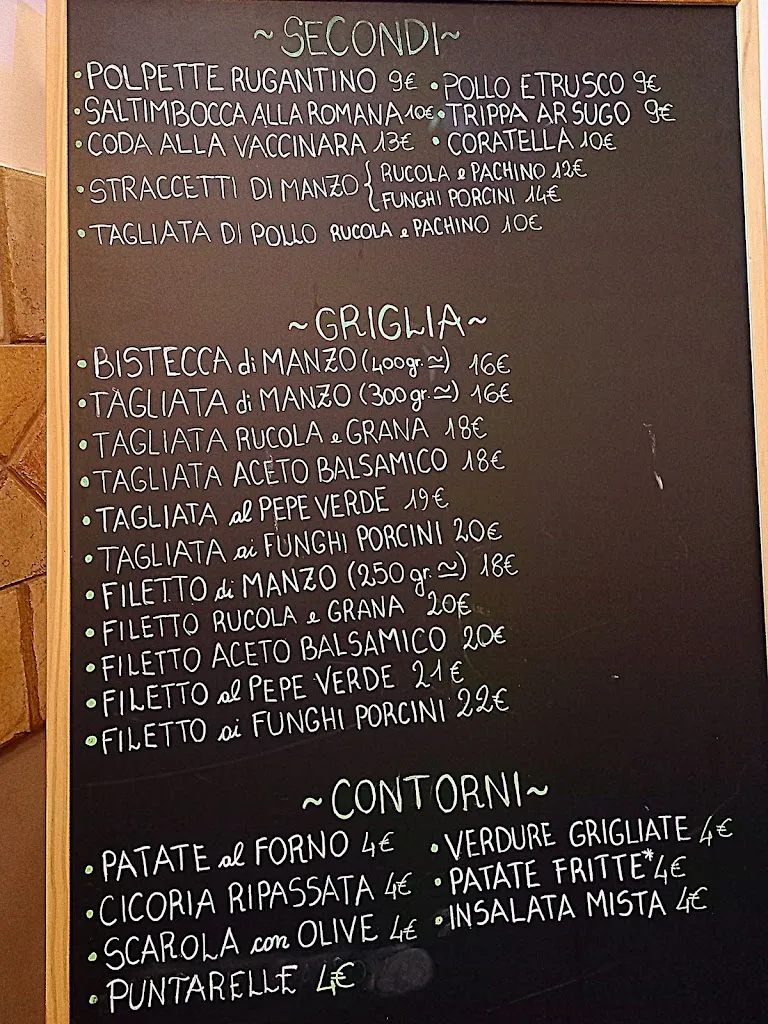 ~SECONDI~
• POLPETTE RUGANTINO 9€ • POLLO ETRUSCO 9€
• SALTIMBOCCA ALLA ROMANA 10€ • TRIPPA AR SUGO 9€
• CODA ALLA VACCINARA 13€ • CORATELLA 10€
• STRACCETTI DI MANZO { RUCOLA e PACHINO 12€
FUNGHI PORCINI 14€
• TAGLIATA DI POLLO RUCOLA e PACHINO 10€
~GRIGLIA~
• BISTECCA di MANZO (400gr.≃) 16€
• TAGLIATA di MANZO (300gr.≃) 16€
• TAGLIATA RUCOLA e GRANA 18€
• TAGLIATA ACETO BALSAMICO 18€
• TAGLIATA al PEPE VERDE 19€
• TAGLIATA ai FUNGHI PORCINI 20€
• FILETTO di MANZO (250gr.≃) 18€
• FILETTO RUCOLA e GRANA 20€
• FILETTO ACETO BALSAMICO 20€
• FILETTO al PEPE VERDE 21€
• FILETTO ai FUNGHI PORCINI 22€
~CONTORNI~
• PATATE al FORNO 4€ • VERDURE GRIGLIATE 4€
• CICORIA RIPASSATA 4€ • PATATE FRITTE* 4€
• SCAROLA con OLIVE 4€ • INSALATA MISTA 4€
• PUNTARELLE 4€